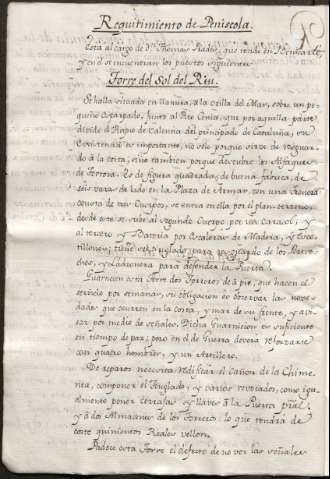 Requirimiento de Peniscola.
Está al cargo de Dn. Thomas Rafae, que reside en Benicarló,
y en él se encuentran los puestos siguientes
Torre del Sol del Riu.
Se halla situada en llanura, a la orilla del Mar, sobre un pe-
queño Escarpado, junto al Rio Cenia, que por aquella parte
divide el Reyno de Valencia del principado de Cataluña, su
situacion es importante, no solo porque sirve de resguar-
do á la costa, sino tambien porque descubre los Alfaques
de Tortosa. Es de figura quadrada, de buena fabrica, de
seis varas de lado en la Plaza de Armas, con una
consta de tres Cuerpos, se entra en ella por el plan terreno,
desde este se sube al segundo Cuerpo, por un Caracol, y
al tercero y Bateria por Escaleras de Madera,
tiene un tinglado, para resguardo de los Pertre-
chos, y Ladronera para defender la Puerta.
Guarnecen esta Torre dos Torreros de á pie, que hacen el
servicio por semanas, su obligacion es observar las nove-
dades que ocurren en la costa, y mar de su frente, y avi-
sar por medio de señales. Dicha Guarnicion es suficiente
en tiempo de paz; pero en el de Guerra deverá reforzarse
con quatro hombres, y un Artillero.
De reparos necesita redificar el Cañon de la Chime-
nea, componer el Tinglado, y varios revocados, como igual-
mente poner cerrajas y llaves á la Puerta pral.
y á dos Almacenes de los Torreros: lo que tendrá de
coste quinientos Reales vellon.
Padece esta Torre el defecto de no ver las señales